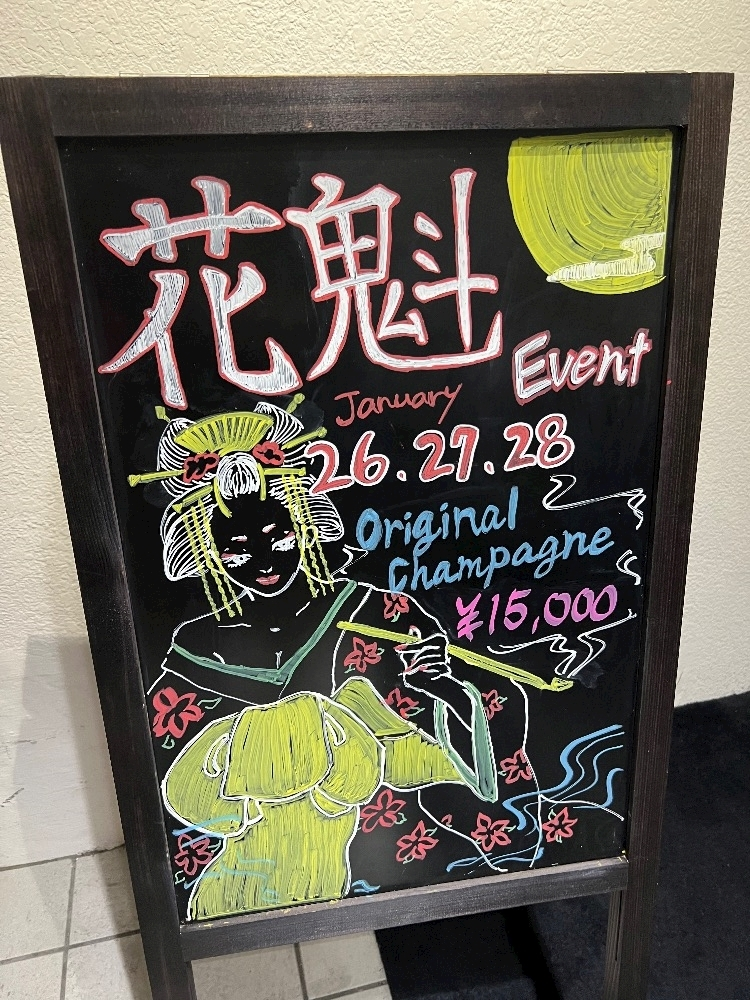 花魁
Event
January
26.27.28
Original
Champagne
¥15,000